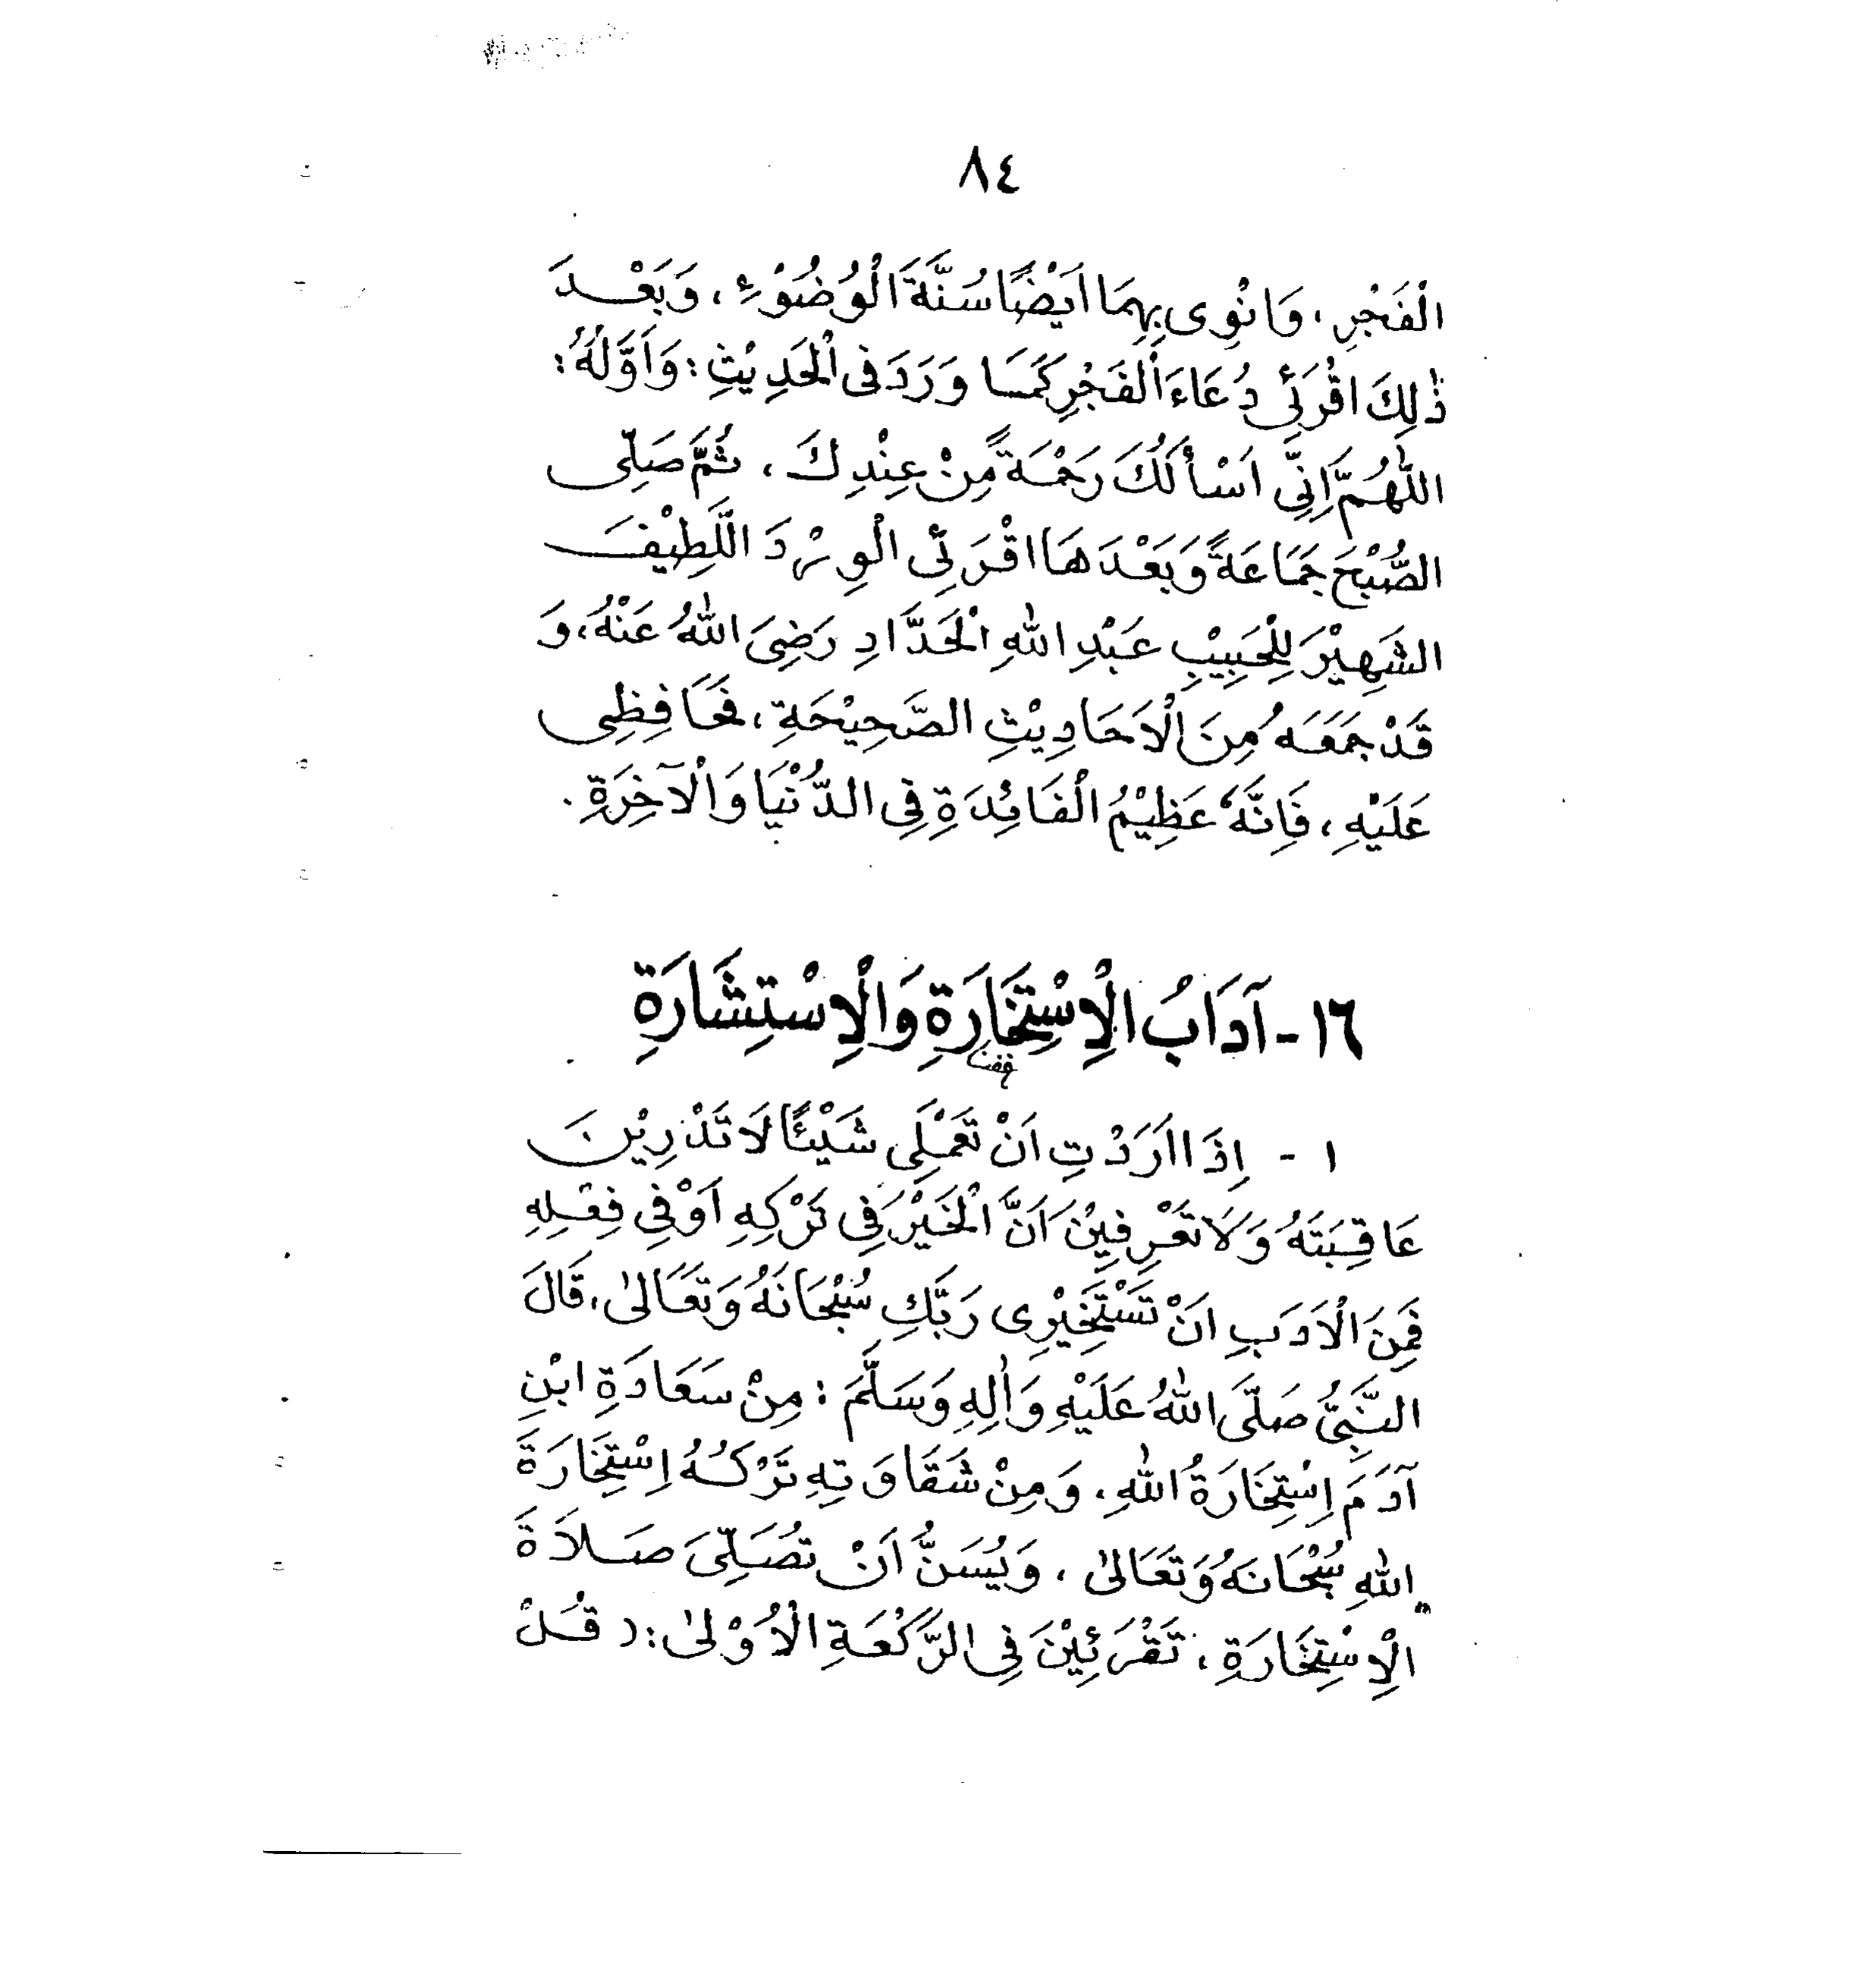 ٨٤
الْفَجْرِ، وَانْوِى بِهِمَا اَيْضًا سُنَّةَ الْوُضُوْءِ، وَبَعْدَ
ذٰلِكَ اقْرَئِى دُعَاءَ الْفَجْرِ كَمَا وَرَدَ فِى الْحَدِيْثِ: وَاَوَّلُهُ:
اللّٰهُمَّ اِنِّى اَسْأَلُكَ رَحْمَةً مِنْ عِنْدِكَ، ثُمَّ صَلِّى
الصُّبْحَ جَمَاعَةً وَبَعْدَهَا اقْرَئِى الْوِرْدَ اللَّطِيْفَ
الشَهِيْرَ لِلْحَبِيْبِ عَبْدِ اللهِ الْحَدَّادِ رَضِىَ اللهُ عَنْهُ، وَ
قَدْ جَمَعَهُ مِنَ الْاَحَادِيْثِ الصَّحِيْحَةِ، فَحَافِظِى
عَلَيْهِ، فَاِنَّهُ عَظِيْمُ الْفَائِدَةِ فِى الدُّنْيَا وَالْآخِرَةِ.
١٦- آدَابُ الْاِسْتِخَارَةِ وَالْاِسْتِشَارَةِ
١ - اِذَا اَرَدْتِ اَنْ تَعْمَلِى شَيْئًا لَا تَدْرِيْنَ
عَاقِبَتَهُ وَلَا تَعْرِفِيْنَ اَنَّ الْخَيْرَ فِى تَرْكِهِ اَوْ فِى فِعْلِهِ
فَمِنَ الْاَدَبِ اَنْ تَسْتَخِيْرِى رَبَّكِ سُبْحَانَهُ وَتَعَالىٰ، قَالَ
النَّبِىُّ صَلَّى اللهُ عَلَيْهِ وَاٰلِهِ وَسَلَّمَ: مِنْ سَعَادَةِ ابْنِ
آدَمَ اِسْتِخَارَةُ اللهِ، وَمِنْ شَقَاوَتِهِ تَرْكُهُ اِسْتِخَارَةَ
اللهِ سُبْحَانَهُ وَتَعَالىٰ، وَيُسَنُّ اَنْ تُصَلِّىَ صَلَاةَ
الْاِسْتِخَارَةِ، تَقْرَئِيْنَ فِى الرَّكْعَةِ الْاُوْلىٰ: (قُلْ